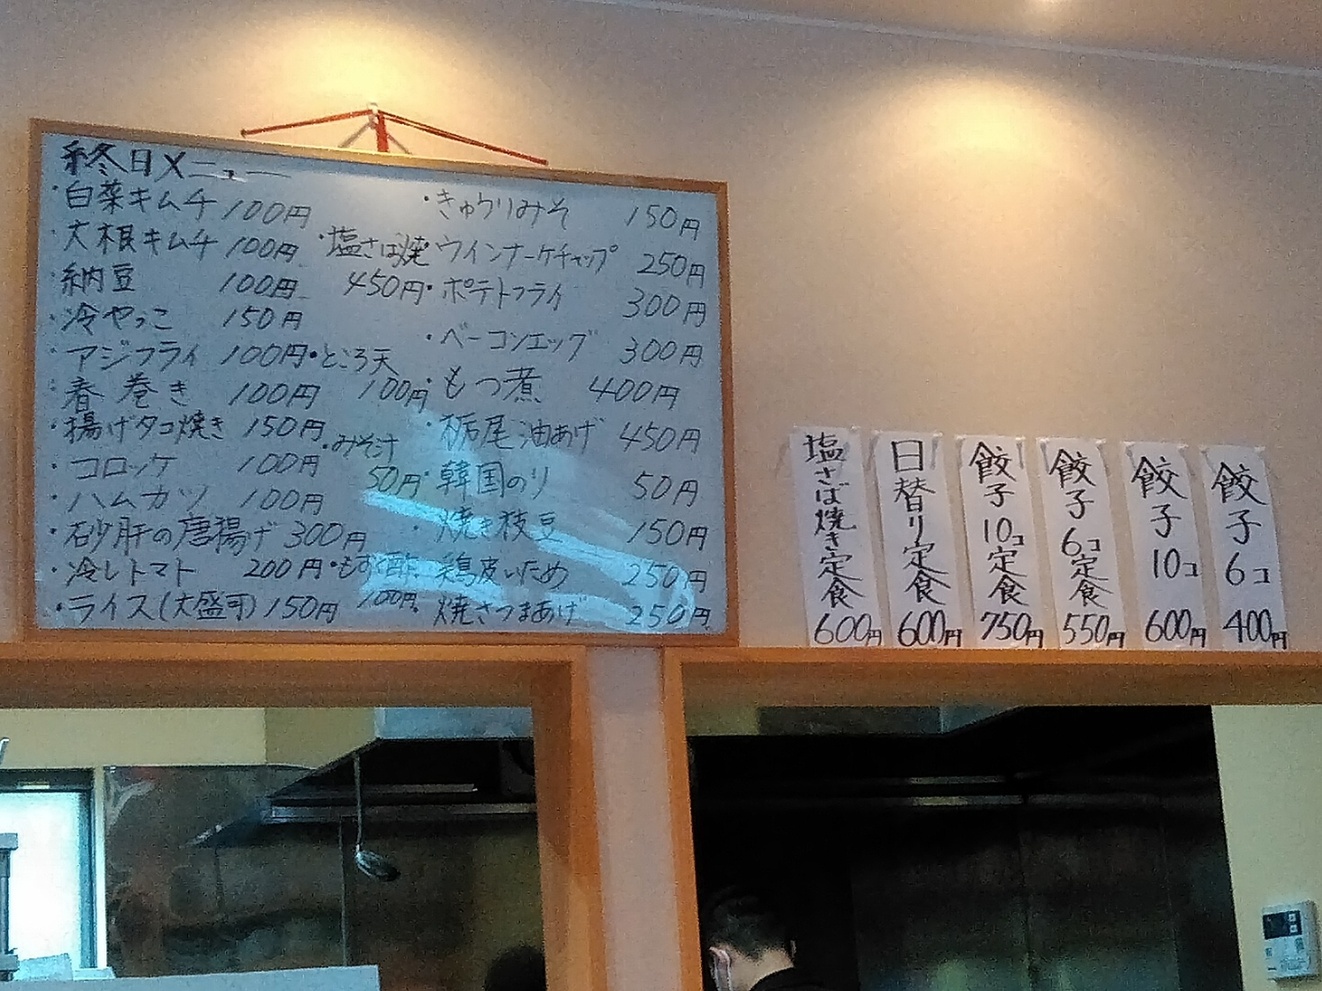 終日メニュー
・白菜キムチ 100円
・大根キムチ 100円
・納豆 100円
・冷やっこ 150円
・アジフライ 100円
・春巻き 100円
・揚げタコ焼き 150円
・コロッケ 100円
・ハムカツ 100円
・砂肝の唐揚げ 300円
・冷しトマト 200円
・ライス(大盛可) 150円
・塩さば焼
450円
・ところ天
100円
・みそ汁
50円
・もずく酢
100円
・きゅうりみそ 150円
・ウインナーケチャップ 250円
・ポテトフライ 300円
・ベーコンエッグ 300円
・もつ煮 400円
・栃尾油あげ 450円
・韓国のり 50円
・焼き枝豆 150円
・鶏皮いため 250円
・焼さつまあげ 250円
塩さば焼き定食 600円
日替り定食 600円
餃子10コ定食 750円
餃子6コ定食 550円
餃子10コ 600円
餃子6コ 400円